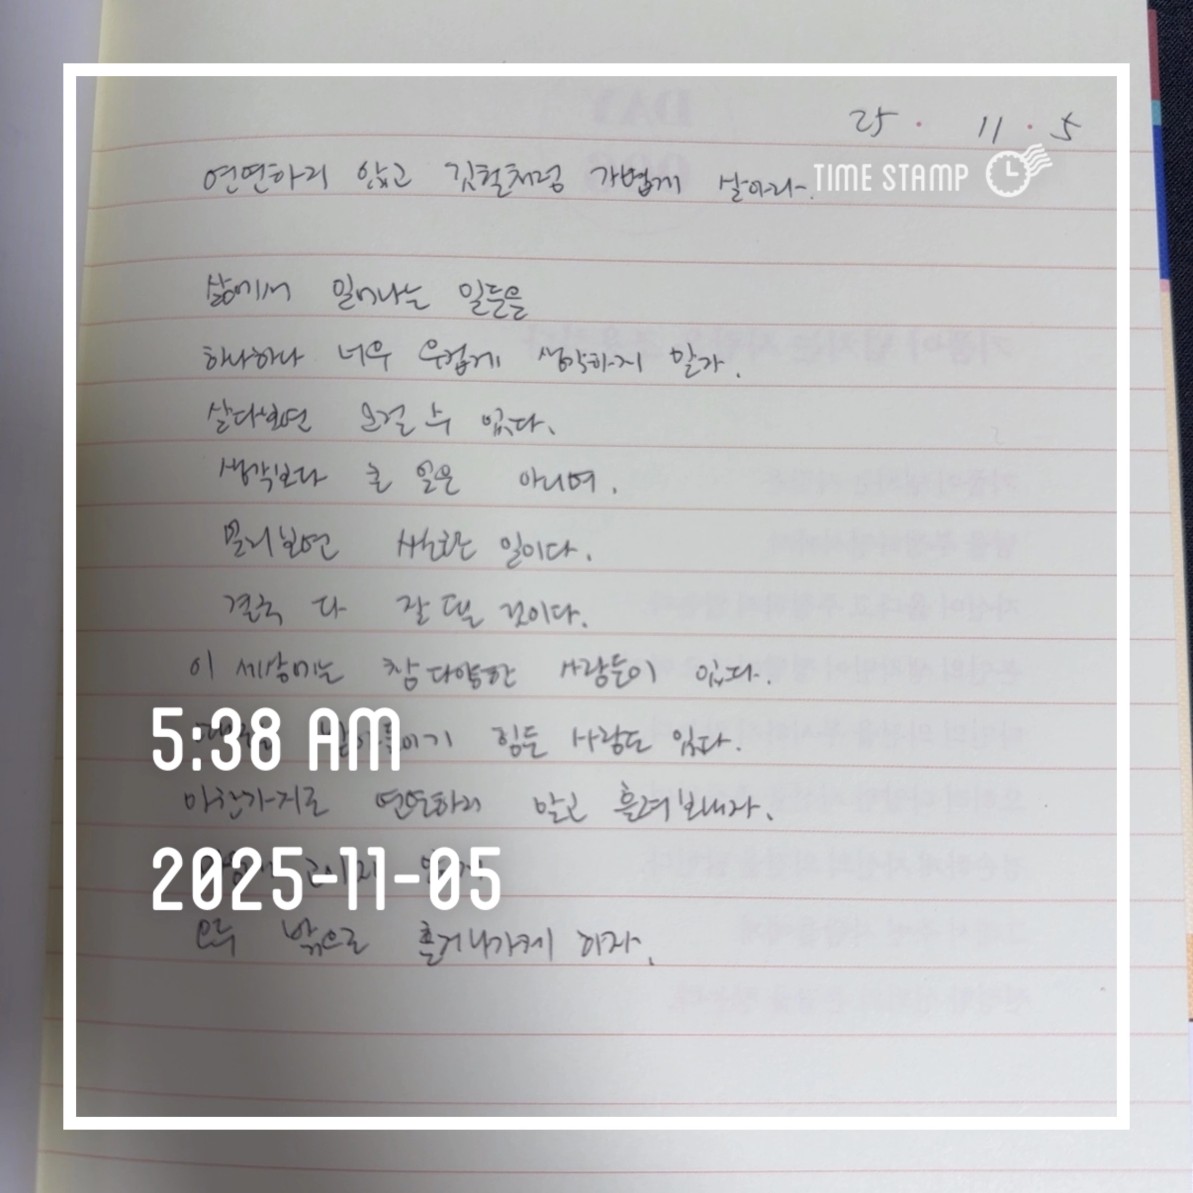 25. 11. 5
TIME STAMP
연연하지 않고 깃털처럼 가볍게 살아라.
삶에서 일어나는 일들을
하나하나 너무 무겁게 생각하지 말자.
살다보면 그럴 수 있다.
생각보다 큰 일은 아니며,
멀리보면 사소한 일이다.
결국 다 잘 될 것이다.
이 세상에는 참 다양한 사람들이 있다.
받아들이기 힘든 사람도 있다.
5:38 AM
마찬가지로 연연하지 않고 흘려보내자.
2025-11-05
모두 밖으로 흘러나가게 하자.